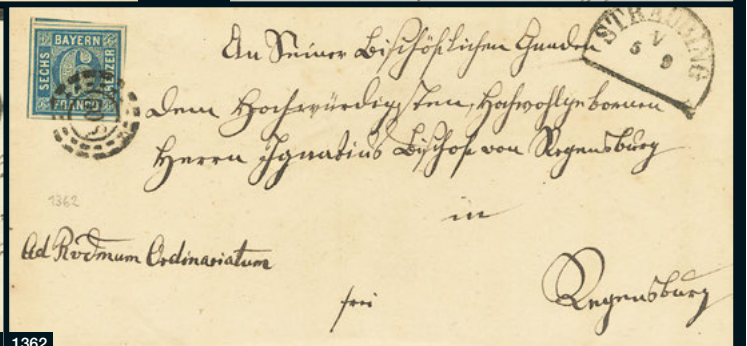 BAYERN
SECHS
KREUZER
FRANCO
STRAUBING
5 V 9
An Seiner Bischöflichen Gnaden
dem Hochwürdigsten, Hochwohlgebornen
Herrn Ignatius Bischof von Regensburg
in
Regensburg
1362
Ad Rvdmum Ordinariatum
frei
1362